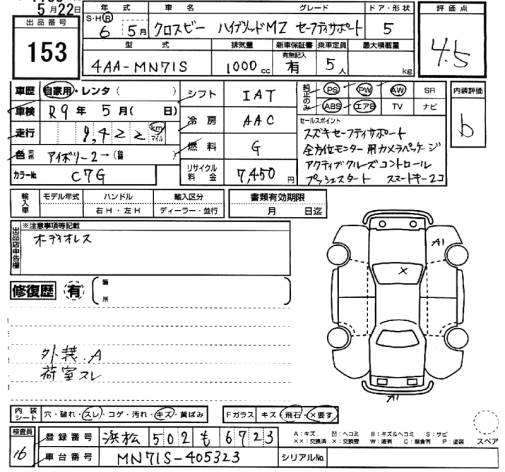 5月22日
出品番号
153
年式 車名 グレード ドア・形状
S・H・R 6年 5月 クロスビー ハイブリッドMZ セーフティサポート 5
型式 排気量 新車保証書 乗車定員 最大積載量
有無記入
4AA-MN71S 1000cc 有 5人 kg
評価点
4.5
内装評価
b
車歴 自家用・レンタ( )
車検 R9年 5月( 日)
走行 9,422 km マイル
色 アイボリー2→(
カラーNo. C7G
シフト IAT
冷房 AAC
燃料 G
リサイクル料金 7,450円
純正のみ PS PW AW SR
ABS エアB TV ナビ
セールスポイント
スズキセーフティサポート
全方位モニター用カメラパッケージ
アクティブクルーズコントロール
プッシュスタート スマートキー2コ
輸入車 モデル年式 ハンドル 輸入区分 書類有効期限
年 右H・左H ディーラー・並行 月 日迄
出品店申告欄
※注意事項等記載
オーディオレス
修復歴 有 ( 箇所 )
外装 A
荷室スレ
A1
×
A1
スペア
内装シート 穴・破れ・スレ・コゲ・汚れ・キズ・黄ばみ
Fガラス キズ・飛石・×要す
A：キズ B：ヘコミ B：キズ&ヘコミ S：サビ
××：交換済 ×：交換要 W：補修 C：腐食 P：塗装
検査員 16
登録番号 浜松 502 も 6723
車台番号 MN71S-405323 シリアルNo.